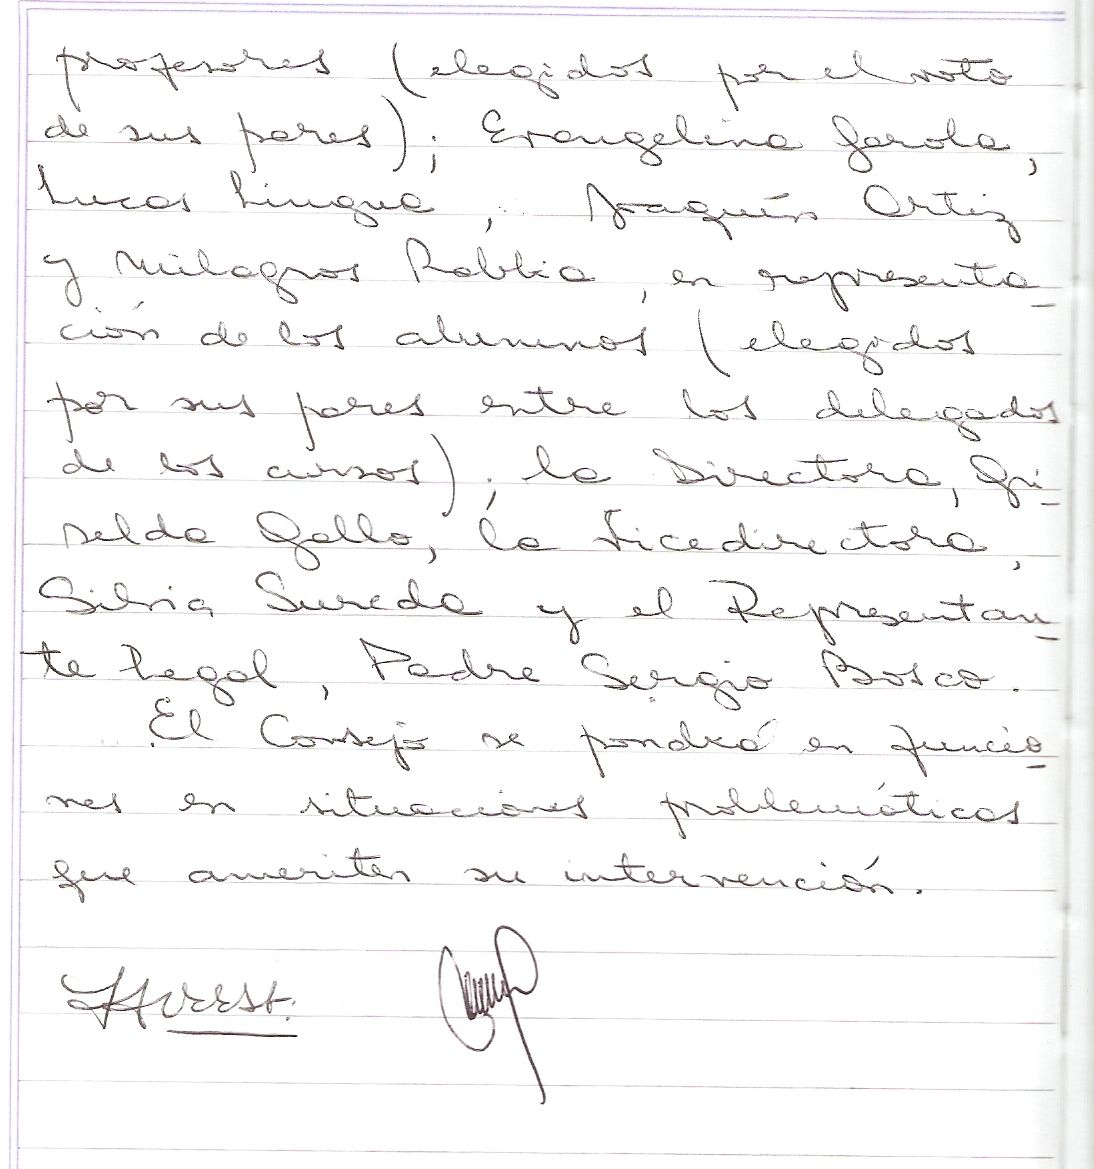 profesores (elegidos por el voto
de sus pares); Evangelina Garola,
Lucas Lingua, Joaquín Ortiz
y Milagros Robbio, en representa-
ción de los alumnos (elegidos
por sus pares entre los delegados
de los cursos); la Directora, Gri-
selda Gallo, la Vicedirectora,
Silvia Sureda y el Representan-
te Legal, Padre Sergio Bosco.
El Consejo se pondrá en funcio-
nes en situaciones problemáticas
que ameriten su intervención.